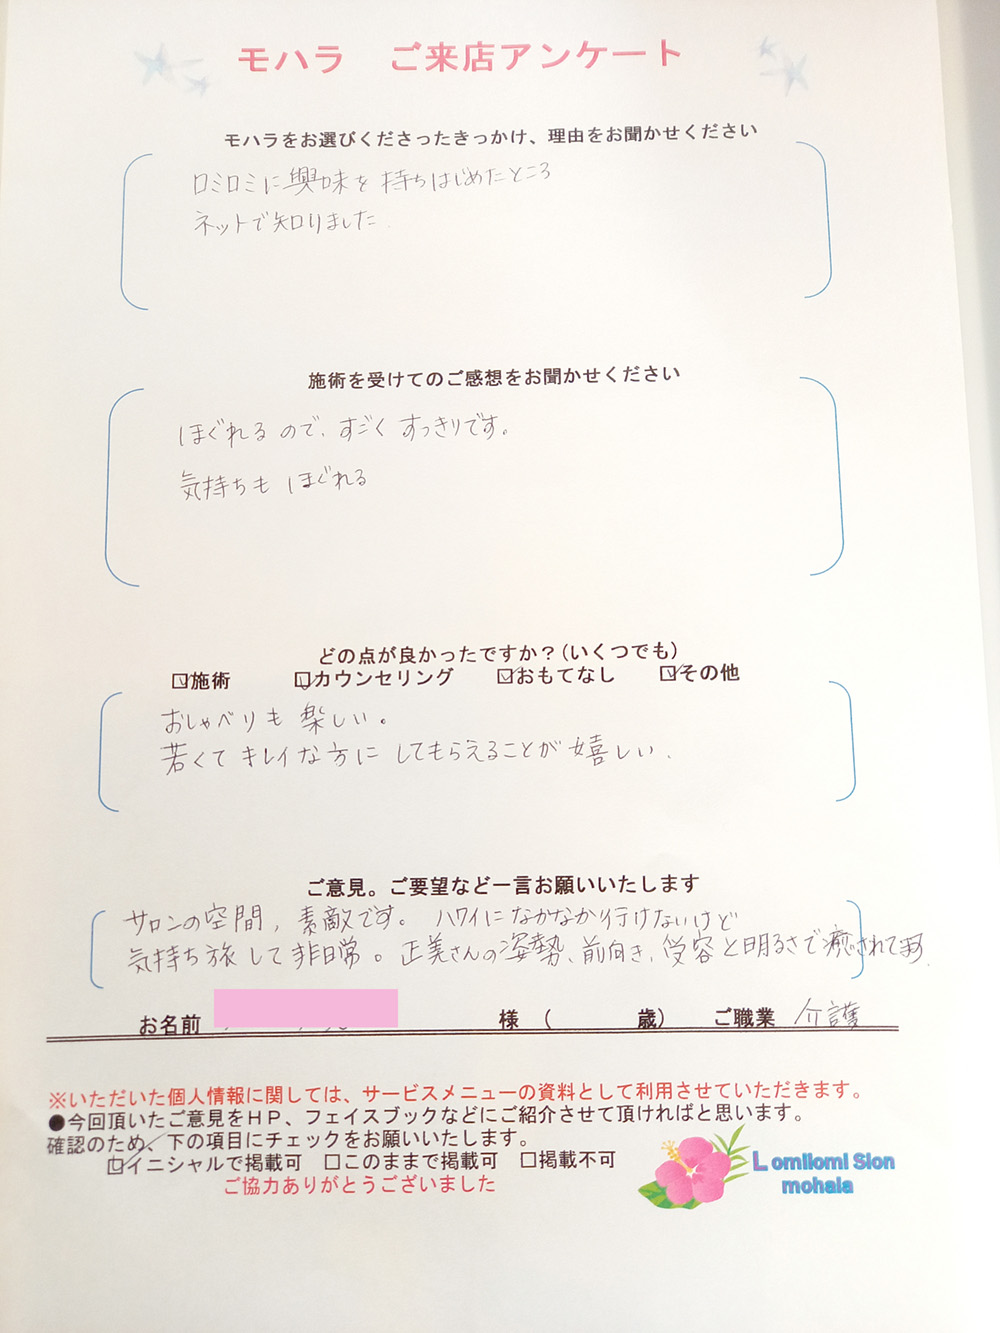 モハラ ご来店アンケート
モハラをお選びくださったきっかけ、理由をお聞かせください
ロミロミに興味を持ちはじめたところ
ネットで知りました
施術を受けてのご感想をお聞かせください
ほぐれるので、すごくすっきりです。
気持ちもほぐれる
どの点が良かったですか？(いくつでも)
☑施術 ☑カウンセリング ☑おもてなし ☑その他
おしゃべりも楽しい。
若くてキレイな方にしてもらえることが嬉しい.
ご意見。ご要望など一言お願いいたします
サロンの空間，素敵です。ハワイになかなか行けないけど
気持ち旅して非日常。正美さんの姿勢、前向き、受容と明るさで癒されてます.
お名前 様 ( 歳) ご職業 介護
※いただいた個人情報に関しては、サービスメニューの資料として利用させていただきます。
●今回頂いたご意見をＨＰ、フェイスブックなどにご紹介させて頂ければと思います。
確認のため、下の項目にチェックをお願いいたします。
☑イニシャルで掲載可 □このままで掲載可 □掲載不可
ご協力ありがとうございました
Lomilomi Slon
mohala